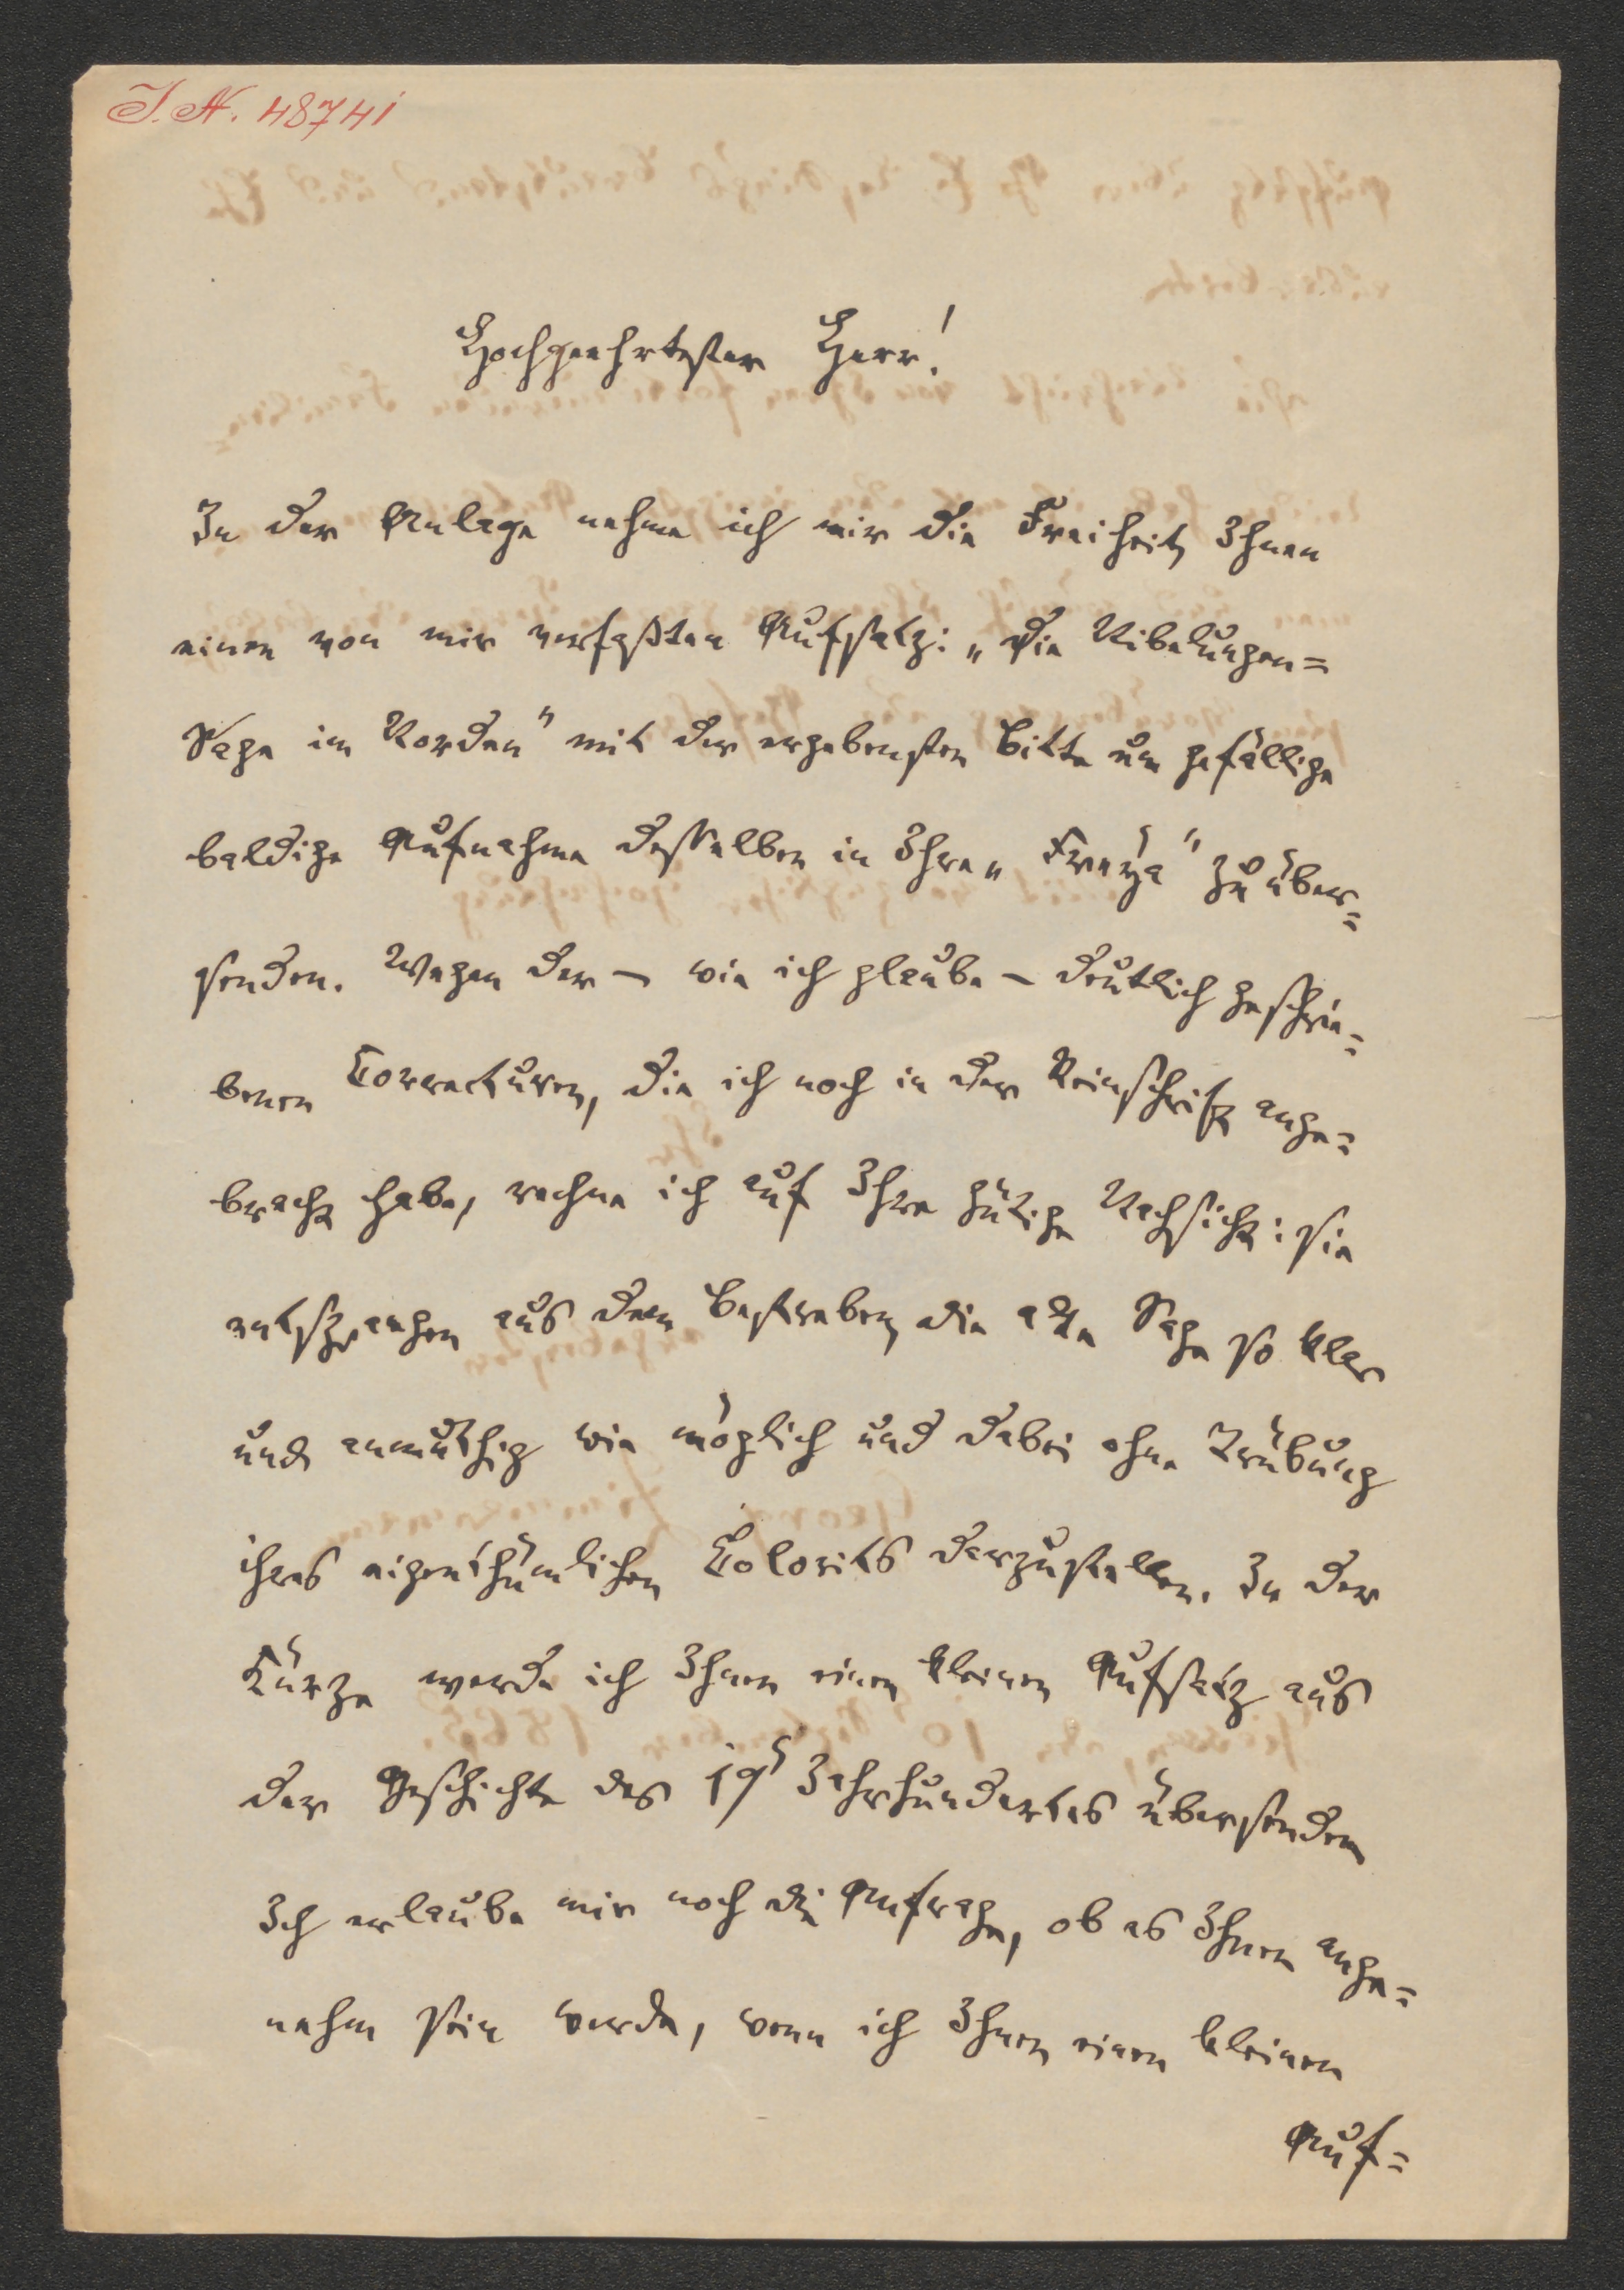 J. N. 48741
Hochgeehrtester Herr!
In der Anlage nehme ich mir die Freiheit, Ihnen
einen von mir verfaßten Aufsatz: „Die Nibelungen=
Sage im Norden" mit der ergebensten Bitte um gefällige
baldige Aufnahme desselben in Ihre „Freya" zu über=
senden. Wegen der – wie ich glaube – deutlich geschrie=
benen Correcturen, die ich noch in der Reinschrift ange=
bracht habe, rechne ich auf Ihre gütige Nachsicht: sie
entsprangen aus dem Bestreben, die alte Sage so klar
und anmuthig wie möglich und dabei ohne Trübung
ihres eigenthümlichen Colorits darzustellen. In der
Kürze werde ich Ihnen einen kleinen Aufsatz aus
der Geschichte des 19' Jahrhundertes übersenden
Ich erlaube mir noch die Anfrage, ob es Ihnen ange=
nehm sein werde, wenn ich Ihnen einen kleinen
Auf=